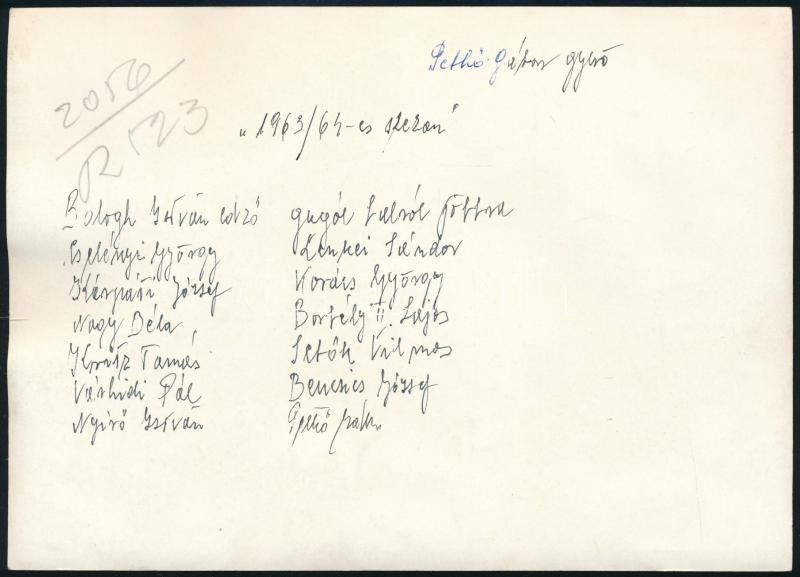 Pethő Gábor gyüjtő
2056
R 123
„1963/64-es szezon"
Balogh István edző
Cselényi György
Kárpáti József
Nagy Béla
Kratz Tamás
Várhidi Pál
Nyírő István
gugól balról jobbra
Lenkei Sándor
Kovács György
Borbély II. Lajos
Sebők Vilmos
Bencsics József
Pethő